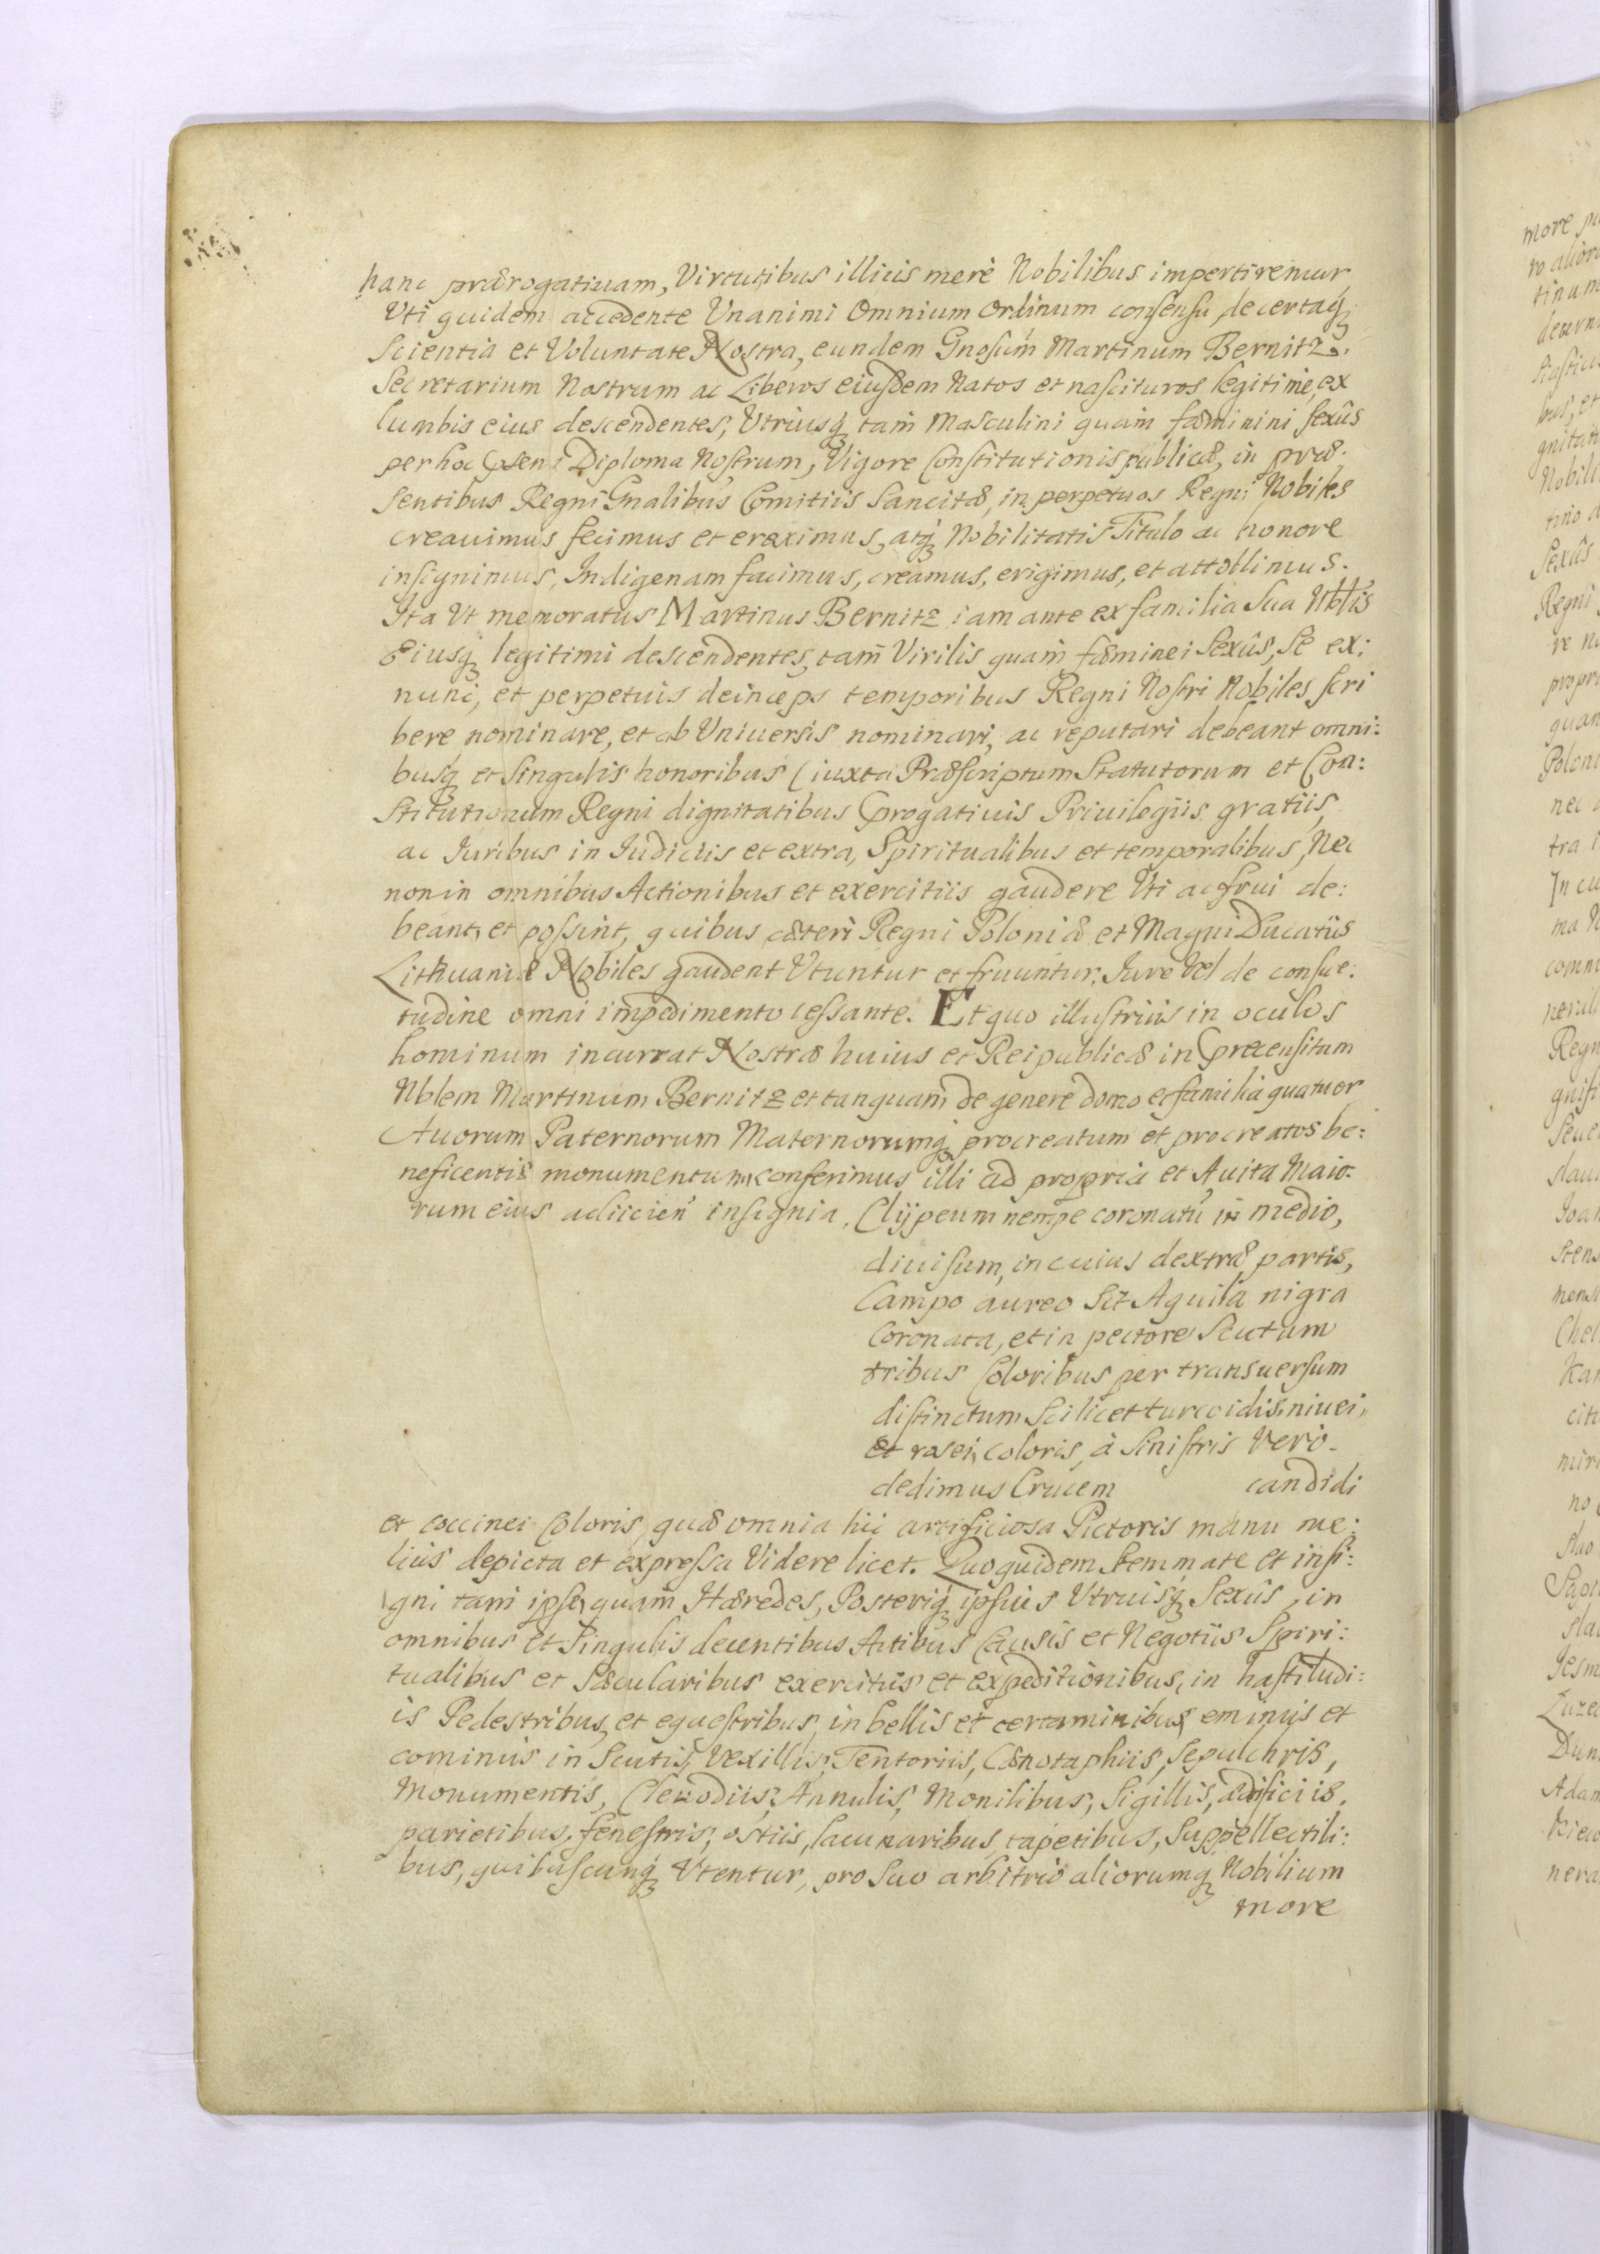 hanc prærogatiuam, Virtutibus illius merè Nobilibus impertiremur
Vti quidem accedente Vnanimi Omnium Ordinum consensu, de certaq;
Scientia et Voluntate Nostra, eundem Gnosum Martinum Bernitz.
Secretarium Nostrum ac Liberos eiusdem Natos et nascituros legitimè, ex
lumbis eius descendentes, Vtriusq; tam Masculini quam fæminini sexûs
per hoc Pñsens Diploma Nostrum, Vigore Constitutionis publicæ, in præ:
sentibus Regni Gnalibus Comitiis Sancitæ, in perpetuos Regni Nobiles
creauimus fecimus et ereximus, atq; Nobilitatis Titulo ac honore
insignimus, Indigenam facimus, creamus, erigimus, et attollimus.
Ita Vt memoratus Martinus Bernitz iam ante ex familia Sua Nblis
Eiusq; legitimi descendentes, tam Virilis quam fæminei Sexûs, Se ex:
nunc, et perpetuis deinceps temporibus Regni Nostri Nobiles scri
bere nominare, et ab Vniuersis nominari, ac reputari debeant omni:
busq; et Singulis honoribus (iuxta Præscriptum Statutorum et Con:
stitutionum Regni dignitatibus Prrogatiuis Priuilegiis gratiis,
ac Iuribus in Iudiciis et extra, Spiritualibus et temporalibus, Nec
non in omnibus Actionibus et exercitiis gaudere Vti ac frui de:
beant, et possint, quibus cæteri Regni Poloniæ et Magni Ducatûs
Lithuaniæ Nobiles gaudent Vtuntur et fruuntur, Iure Vel de consue:
tudine omni impedimento cessante. Et quo illustrius in oculos
hominum incurrat Nostræ huius et Reipublicæ in Precensitum
Nblem Martinum Bernitz et tanquam de genere domo et familia quatuor
Auorum Paternorum Maternorumq; procreatum et procreatos be:
neficentiæ monumentum, conferimus illi ad propria et Auita Maio:
rum eius adiicien insignia, Clypeum nempe coronatu in medio,
diuisum, in cuius dextræ partis,
Campo aureo Sit Aquila nigra
Coronata, et in pectore Scutum
tribus Coloribus per transuersum
distinctum Scilicet turcoidis, niuei,
et rosei, coloris, à Sinistris Verò
dedimus Crucem candidi
et coccinei Coloris, quæ omnia hic artificiosa Pictoris manu me:
lius depicta et expressa Videre licet. Quo quidem Stemmate et insi:
gni tam ipse, quam Hæredes, Posteriq; ipsius Vtruisq; Sexûs, in
omnibus et Singulis decentibus Actibus Causis et Negotiis Spiri:
tualibus et Sæcularibus exercitiis et expeditionibus, in hastiludi:
is Pedestribus, et equestribus, in bellis et certaminibus, eminus et
cominus in Scutis, Vexillis, Tentoriis, Cænotaphiis, Sepulchris,
Monumentis, Clenodiis, Annulis, Monilibus, Sigillis, ædificiis,
parietibus, fenestris, ostiis, lacunaribus, tapetibus, Suppellectili:
bus, quibuscunq; Vtentur, pro Suo arbitrio aliorumq; Nobilium
more